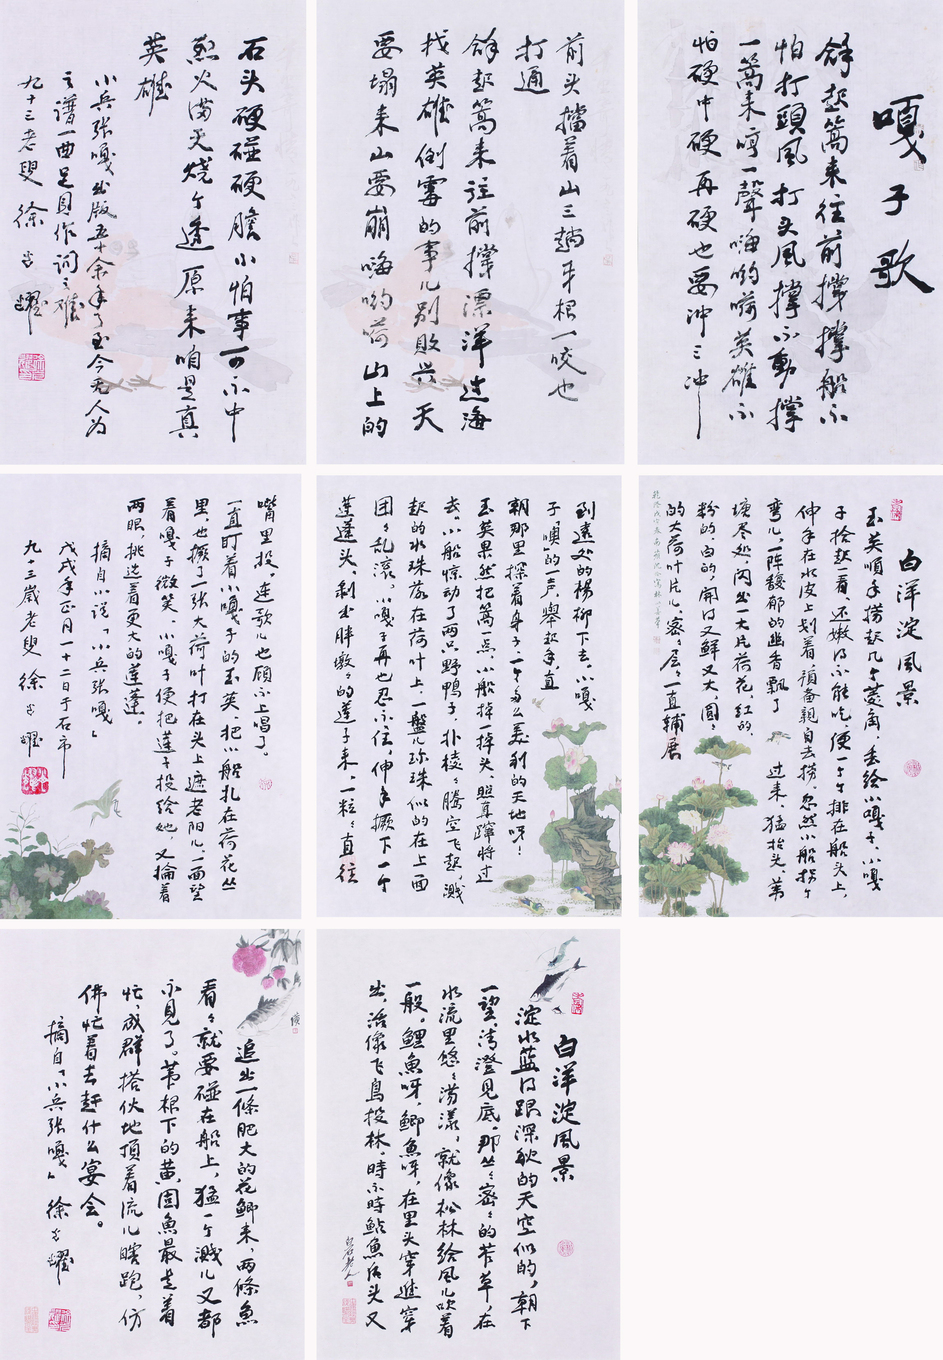 嘎子歌
拿起篙来往前撑撑船不
怕打頭風打头风撑不動撑
一篙来哼一聲嗨哟嗬英雄不
怕硬中硬再硬也要冲三冲
前头擋着山三趟牙根一咬也
打通
拿起篙来往前撑漂洋过海
找英雄倒霉的事儿别败兴天
要塌来山要崩嗨哟嗬山上的
石头硬碰硬膽小怕事可不中
烈火满天烧个透原来咱是真
英雄
小兵张嘎出版五十余年了至今无人为
之谱一曲足具作词之雄
九十三老叟徐光耀
白洋淀風景
玉英順手捞起几个菱角,丢给小嘎子。小嘎
子拾起一看,还嫩得不能吃,便一个个排在船头上,
伸手在水皮上划着,預备親自去捞。忽然小船拐个
弯儿,一阵馥郁的幽香飘了过来,猛抬头,苇
塘尽处,闪出一大片荷花,红的、
粉的、白的,開得又鮮又大,圆圆
的大荷叶片儿,密密层层一直辅展
到遠处的楊柳下去。小嘎
子「噢」的一声,舉起手,直
朝那里探着身子:一个多么美丽的天地呀!
玉英果然把篙一点,小船掉一掉头,照直蹿将过
去。小船惊动了两只野鴨子,扑棱棱騰空飞起,溅
起的水珠落在荷叶上,一盤儿珍珠似的在上面
团团乱滚。小嘎子再也忍不住,伸手撅下一个
莲蓬头,剥出胖墩墩的莲子来,一粒粒直往
嘴里投。连歌儿也顾不上唱了。
一直盯着小嘎子的玉英,把小船扎在荷花丛
里,也撅了一张大荷叶打在头上遮老阳儿,一面望
着嘎子微笑。小嘎子便把莲子投给她,又掄着
两眼,挑选着更大的莲蓬。
摘自小说「小兵张嘎」
戊戌年正月一十二日于石市
九十三歲老叟徐光耀
白洋淀風景
淀水藍得跟深秋的天空似的,朝下
一望,清澄見底。那丛丛密密的苲草,在
水流里悠悠荡漾,就像松林给風儿吹着
一般。鯉魚呀,鯽魚呀,在里头穿進穿
出,活像飞鳥投林。時不時鮎魚后头又
白石老人
追出一條肥大的花鯽来,两條魚
看看就要碰在船上,猛一个溅儿又都
不見了。苇根下的黄固魚最是着
忙,成群搭伙地頂着流儿瞎跑,仿
佛忙着去趕什么宴会。
摘自「小兵张嘎」徐光耀